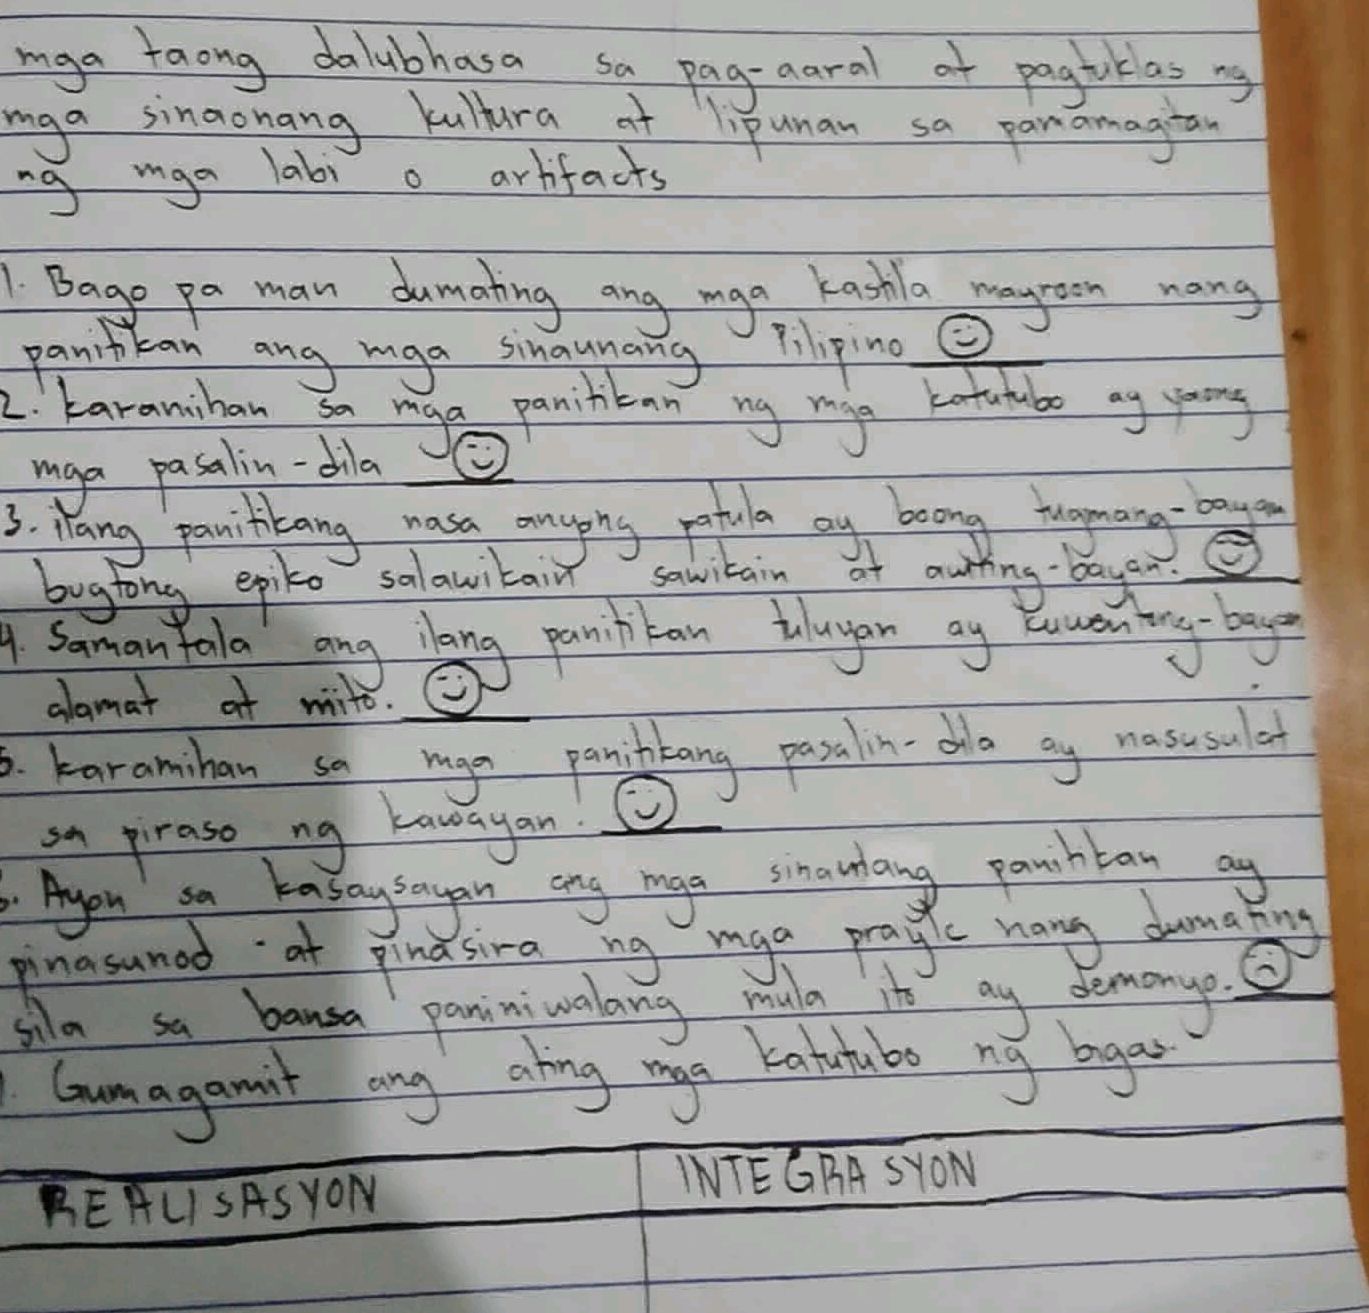 mga taong dalubhasa sa pag-aaral at pagtuklas ng
mga sinaonang kultura at lipunan sa pamamagitan
ng mga labi o artifacts
1. Bago pa man dumating ang mga kastila mayroon nang
panitikan ang mga sinaunang Pilipino
2. karamihan sa mga panitikan ng mga katutubo ay yaong
mga pasalin-dila
3. ilang panitikang nasa anyong patula ay boong tugmang-bayan
bugtong epiko salawikain sawikain at awiting-bayan.
4. Samantala ang ilang panitikan tuluyan ay kuwenting-bayan
alamat at mito.
5. karamihan sa mga panitikang pasalin-dila ay nasusulat
sa piraso ng kawayan.
6. Ayon sa kasaysayan ang mga panitikan ay
pinasunod at pinasira ng mga nang dumating
sila sa bansa paniniwalang mula ito ay demonyo.
Gumagamit ang ating mga katutubo ng bigas.
REALISASYON
INTEGRASYON